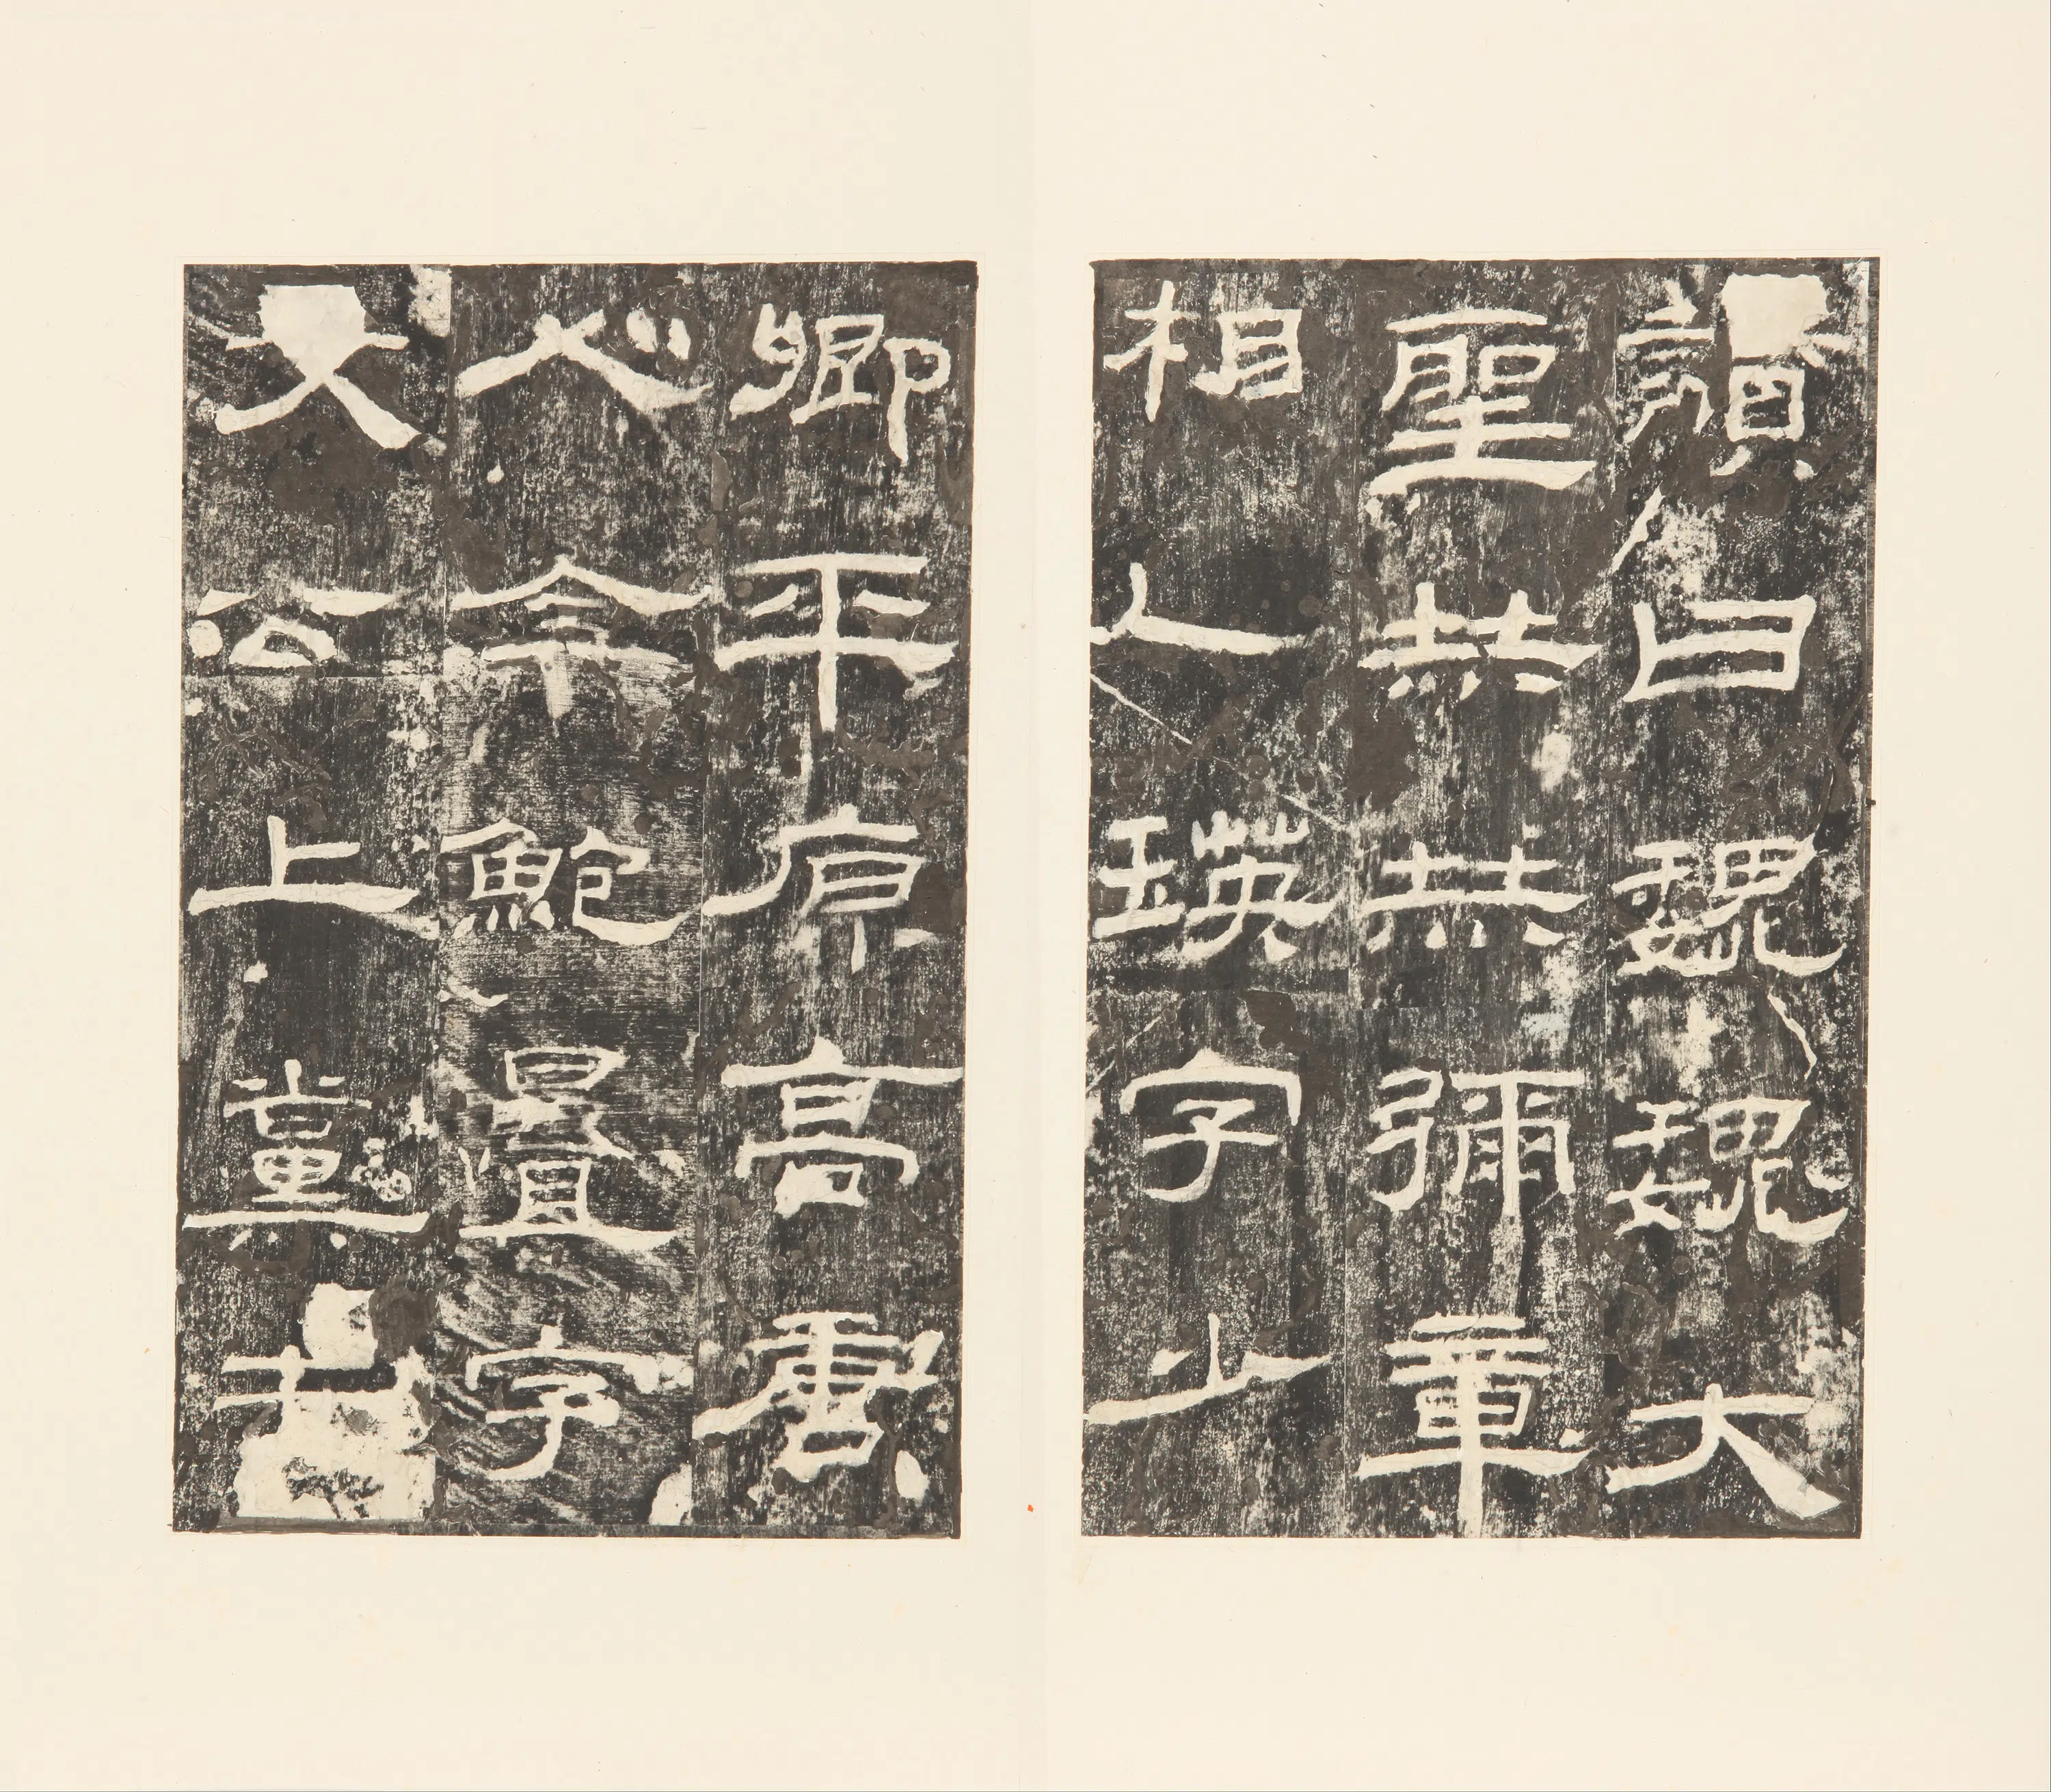 讚曰巍巍大
聖赫赫彌章
相乙瑛字少
卿平原高唐
人令鮑疊字
文公上黨